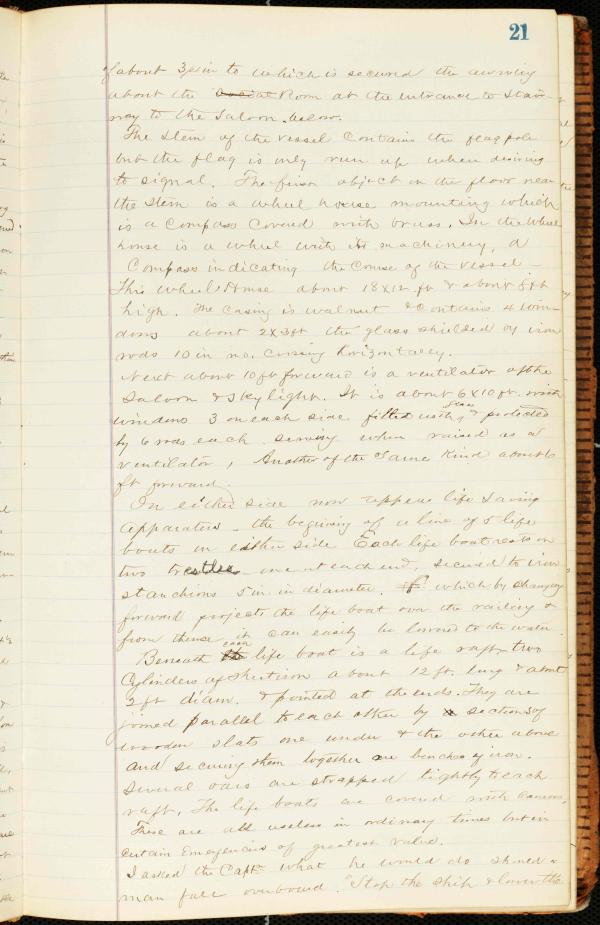 21
of about 3 in to which is secured the awning
about the Room at the entrance to stair-
way to the Saloon below.
The Stem of the vessel Contains the flag pole
but the flag is only run up when desiring
to signal. The first object on the floor near
the Stem is a wheel house mounting which
is a Compass Covered with brass. In the wheel
house is a wheel with its machinery, a
Compass indicating the Course of the vessel -
This wheel House about 18x12 ft & about 8 ft
high. The Casing is walnut & Contains 4 win-
dows about 2x3 ft the glass shielded by iron
rods 10 in no. Crossing horizontally.
Next about 10 ft forward is a ventilator of the
Saloon & Skylight. It is about 6x10 ft. with
windows 3 on each side fitted with glass & protected
by 6 rods each serving when raised as a
ventilator, Another of the Same Kind about 6
ft forward.
On either side now appear life Saving
apparatus - the begining of a line of 5 life
boats on either side Each life boat rests on
two trestles one at each end, secured to iron
stanchions 5 in. in diameter. which by changing
forward projects the life boat over the railing &
from thence it can easily be lowered to the water.
Beneath each life boat is a life raft two
Cylinders of sheet iron about 12 ft. long & about
2 ft diam. & pointed at the ends. They are
joined parallel to each other by sections of
wooden slats one under & the other above
and securing them together are benches of iron.
Several oars are strapped tightly to each
raft. The life boats are covered with Canvas,
These are all useless in ordinary times but in
Certain Emergencies of greatest value.
I asked the Capt. what he would do should a
man fall overboard. "Stop the ship & lower the